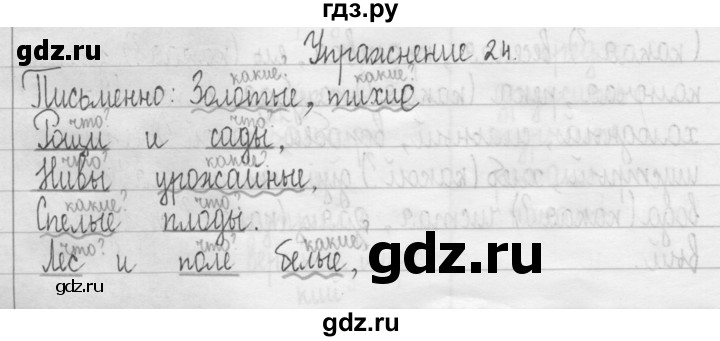 гдз.ру
gdz.ru
Упражнение 24.
какие? какие?
Письменно: Золотые, тихие
что? что?
Рощи и сады,
что? какие?
Нивы урожайные,
какие? что?
Спелые плоды.
что? что? какие?
Лес и поле белые,
gdz.ru
gdz.ru
gdz.ru